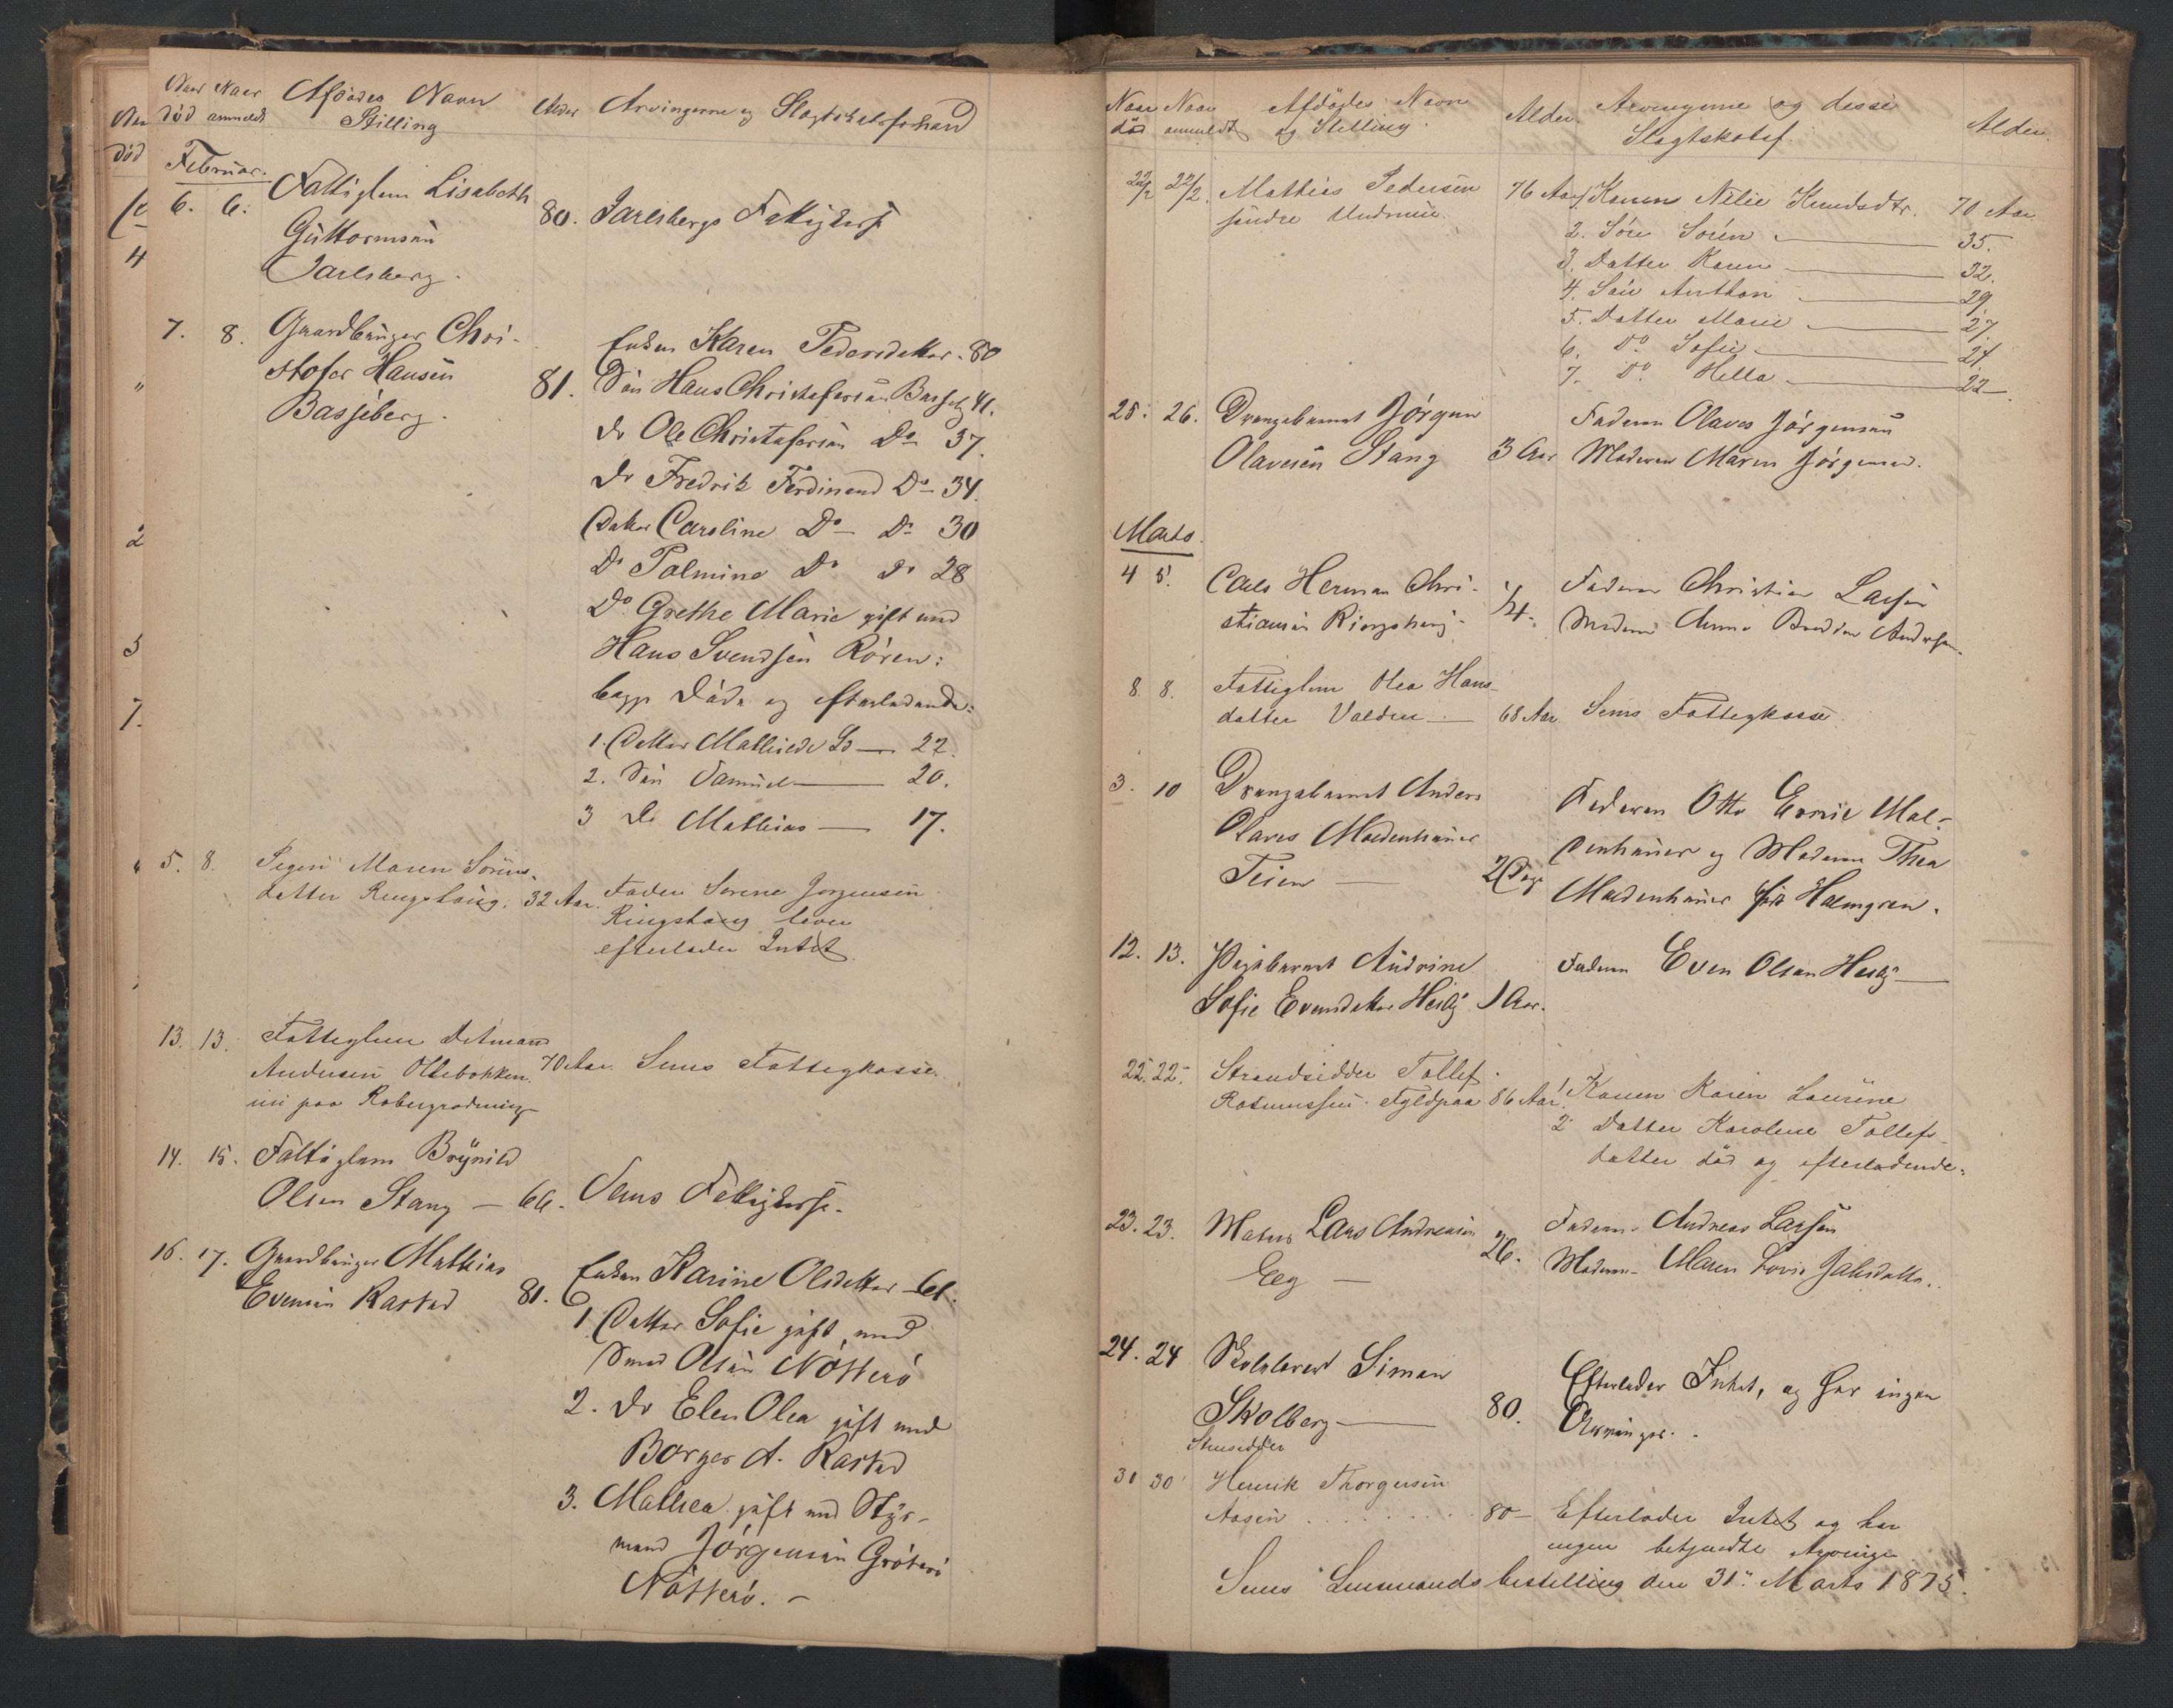 Naar Naar Afdødes Navn Alder Arvingerne og Slagtskabsforhold
død anmeldt Stilling
Februar.
6. 6. Fattiglem Lisabeth
Guttormsen 80. Jarlsbergs Fattigkasse
Jarlsberg.
7. 8. Gaardbruger Chri-
stofer Hansen 81.
Basseberg.
Enken Karen Pedersdatter. 80
Søn Hans Christofersen Basseb. 41.
Do Ole Christofersen Do 37.
Do Fredrik Ferdinand Do 34.
Datter Caroline Do Do 30
Do Palmine Do Do 28
Do Grethe Marie gift med
Hans Svendsen Røren:
begge Døde og efterladende:
1. Datter Mathilde 22.
2. Søn Samuel 20.
3 Do Mathias 17.
5. 8. Pigen Maren Sørens-
datter Ringshaug. 32 Aar. Fader Sørene Jørgensen
Ringshaug lever
efterlader Intet.
13. 13. Fattiglem Ditmand
Andersen Ollebakken 70 Aar. Sems Fattigkasse.
nu paa Robergrødning
14. 15. Fattiglem Brynild
Olsen Stang — 66. Sems Fattigkasse.
16. 17. Gaardbruger Mathias
Evensen Rastad 81.
Enken Karine Olsdatter 61.
1 Datter Sofie gift med
Smed Olsen Nøtterø
2. Do Elen Olea gift med
Borger A. Rastad
3. Mathea gift med Styr-
mand Jørgensen Grøterø
Nøtterø. —
Naar Naar Afdødes Navn Alder. Arvingerne og disse Alder.
død anmeldt og Stilling. Slagtskabsf.
22/2 22/2. Mathias Pedersen 76 Aar
søndre Undrum.
1. Konen Nilie Knudsdtr. 70 Aar.
2. Søn Søren 35.
3. Datter Karen 32.
4. Søn Anthon 29.
5. Datter Marie 27
6. Do Sofie 24
7. Do Hella 22
25. 26. Drengebarnet Jørgen Faderen Olaves Jørgensen
Olavesen Stang 3 Aar Moderen Maren Jørgensen.
Marts.
4 5. Carls Herman Chri- 1/4. Faderen Christian Larsen
stiansen Ringshaug. Moderen Anne Andersen.
8. 8. Fattiglem Olea Hans-
datter Valden — 68 Aar Sems Fattigkasse.
3. 10 Drengebarnet Anders
Olaves Moldenhauer
Teien — 2 Dage
Faderen Otto Emil Mol-
denhauer og Moderen Thea
Moldenhauer født Holmgren.
12. 13. Pigebarnet Andrine Faderen Even Olsen Hesby
Sofie Evensdatter Hesby 1 Aar.
22. 22. Strandsidder Tollef
Rasmussen Fyldpaa 86 Aar.
1 Konen Karen Laurine
2 Datter Karoline Tollefs-
datter død og efterladende:
23. 23. Matros Lars Andreasen 26. Faderen Andreas Larsen
Eeg — Moderen Maren Lovise Jakobsdatter.
24. 24 Skolelærer Simon
Skolberg 80. Efterlader Intet, og har ingen
Arvinger.
Huusidder
30 30 Henrik Thorgersen
Aasen . . . . . . . . 80 — Efterlader Intet og har
ingen betjendte Arvinger
Sems Lensmandsbestilling den 31. Marts 1875.